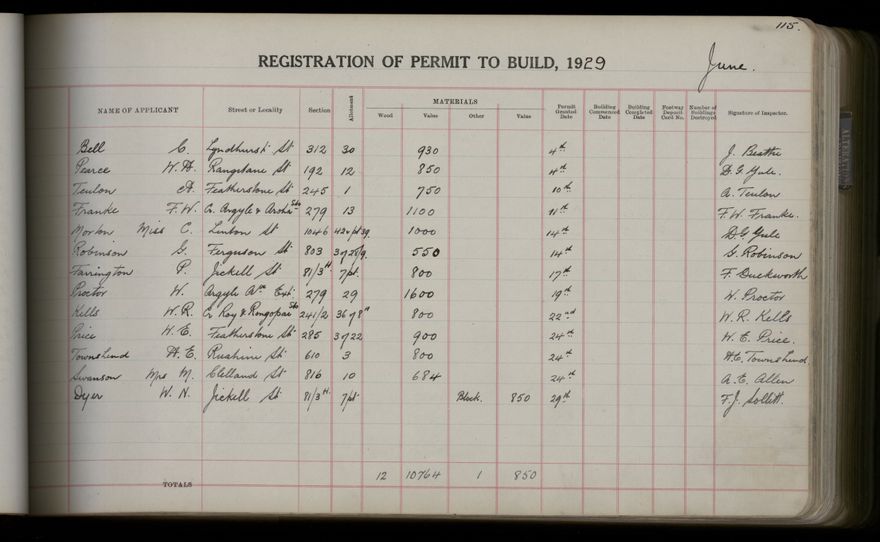 115.
REGISTRATION OF PERMIT TO BUILD, 1929
June.
NAME OF APPLICANT Street or Locality Section Allotment MATERIALS Permit Granted Date Building Commenced Date Building Completed Date Footway Deposit Card No. Number of Buildings Destroyed Signature of Inspector.
Wood Value Other Value
Bell C. Lyndhurst St 312 30 930 4th J. Beattie
Pearce W.H. Rangitane St 192 12 850 4th D.G. Yule.
Teulon A. Featherstone St 245 1 750 10th A. Teulon
Franke F.W. Cr. Argyle & Aroha Sts 279 13 1100 11th F.W. Franke.
Morton Miss C. Linton St 1046 1000 14th D.G. Yule
Robinson G. Ferguson St 803 550 14th G. Robinson
Farrington P. Jickell St 81/3 H. 7pt. 800 17th F. Duckworth
Proctor W. Argyle Ave Ext. 279 29 1600 19th W. Proctor
Kells W.R. Cr Roy & Rongopai Sts 241/2 36 of 8 800 22nd W.R. Kells
Price W.E. Featherstone St 285 3 of 22 900 24th W.E. Price.
Townshend H.E. Ruahine St 610 3 800 24th H.E. Townshend
Swanson Mrs M. Clelland St 816 10 684 24th A.E. Allen
Dyer W.N. Jickell St 81/3 H. 7pt Block. 850 29th F.J. Sollitt.
TOTALS 12 10764 1 850
ALTERATION